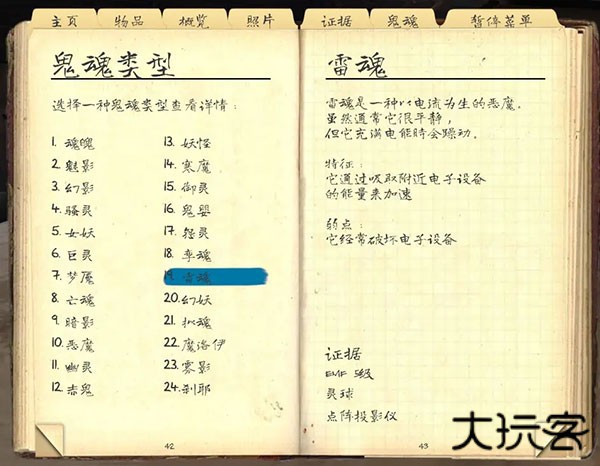 主页 物品 概览 照片 证据 鬼魂 暂停菜单
鬼魂类型
选择一种鬼魂类型查看详情：
1. 魂魄
2. 魅影
3. 幻影
4. 骚灵
5. 女妖
6. 巨灵
7. 梦魇
8. 亡魂
9. 暗影
10. 恶魔
11. 幽灵
12. 赤鬼
13. 妖怪
14. 寒魔
15. 御灵
16. 鬼婴
17. 怨灵
18. 孪魂
19. 雷魂
20. 幻妖
21. 拟魂
22. 魔洛伊
23. 雾影
24. 刹耶
42
雷魂
雷魂是一种以电流为生的恶魔.
虽然通常它很平静,
但它充满电能时会躁动.
特征:
它通过吸取附近电子设备
的能量来加速
弱点:
它经常破坏电子设备
证据
EMF 5级
灵球
点阵投影仪
43
大玩客